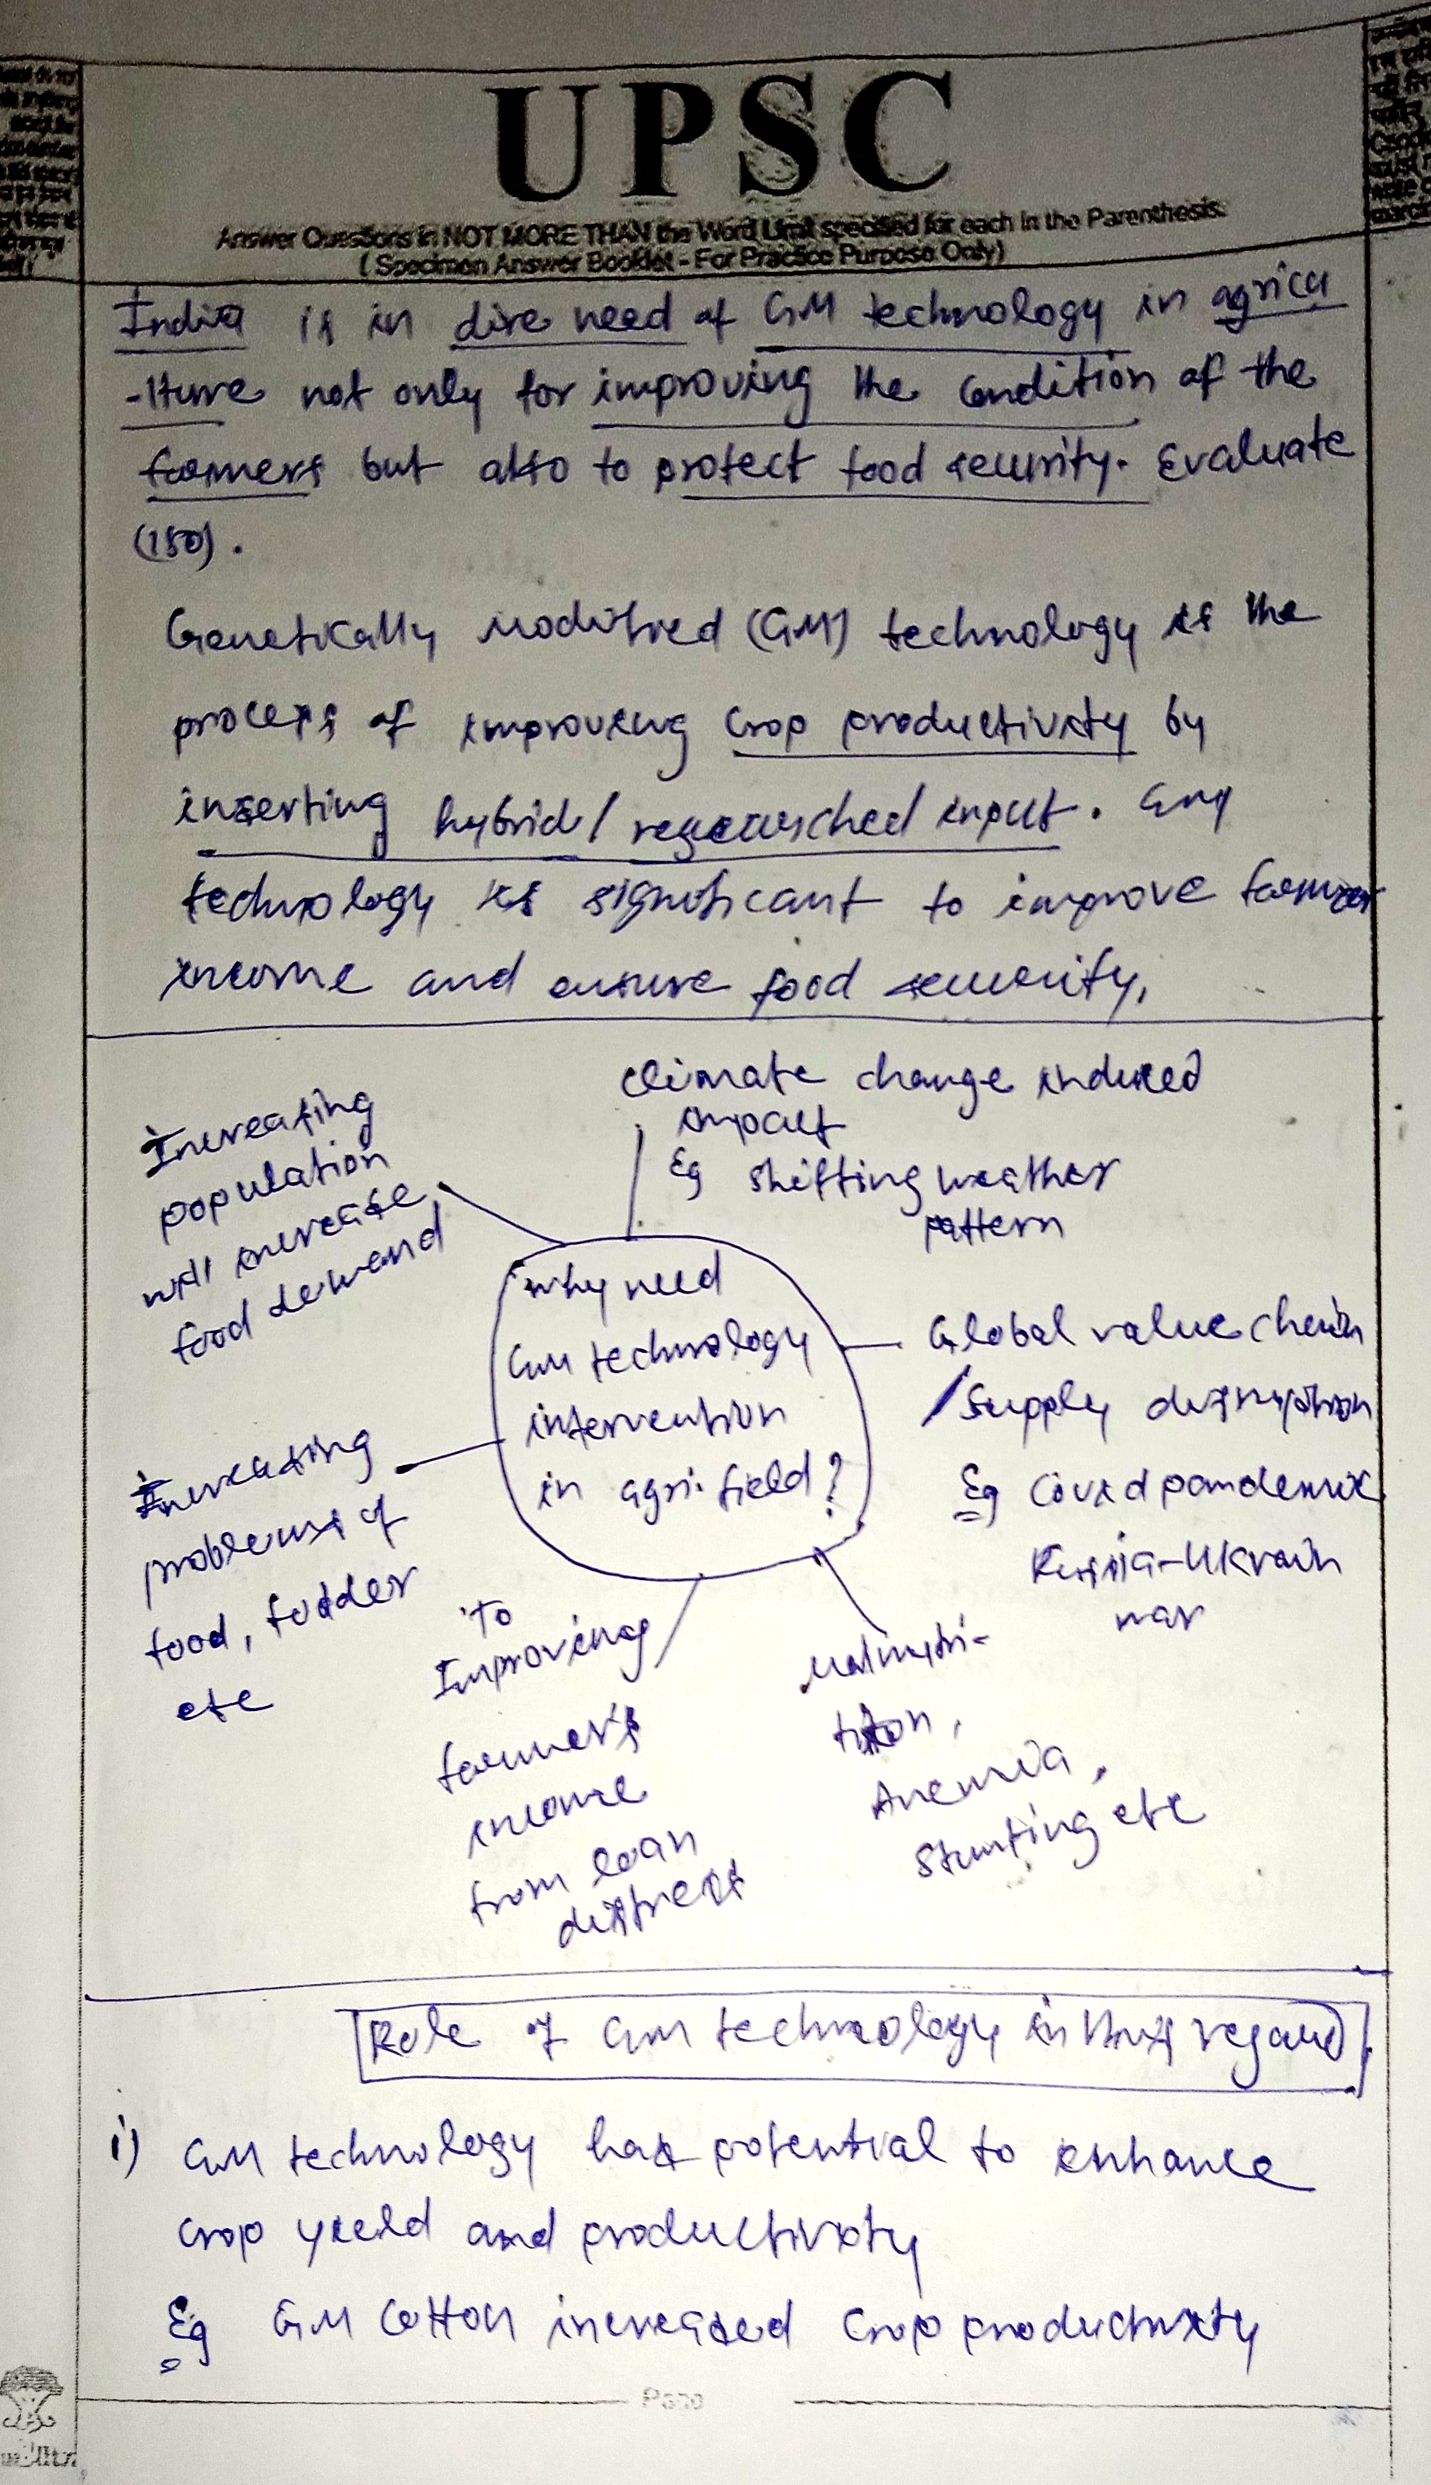 UPSC
Answer Questions in NOT MORE THAN the Word Limit specified for each in the Parenthesis.
(Specimen Answer Booklet - For Practice Purpose Only)
India is in dire need of GM technology in agricu
-lture not only for improving the condition of the
farmers but also to protect food security. Evaluate
(150).
Genetically modified (GM) technology is the
process of improving crop productivity by
inserting hybrid / researched input.
technology is significant to improve farmer
income and ensure food security.
climate change induced
impact
Eg shifting weather
pattern
Increasing
population
will increase
food demand
Why need
GM technology
intervention
in agri. field?
Global value chain
/ Supply disruption
Eg Covid pandemic
Russia-Ukrain
war
Increasing
problems of
food, fodder
etc
To
Improving
farmer's
income
from loan
distress
Malnutri-
tion,
Anemia,
Stunting etc
Role of GM technology in this regard
i) GM technology has potential to enhance
crop yield and productivity
Eg GM Cotton increased crop productivity
Page